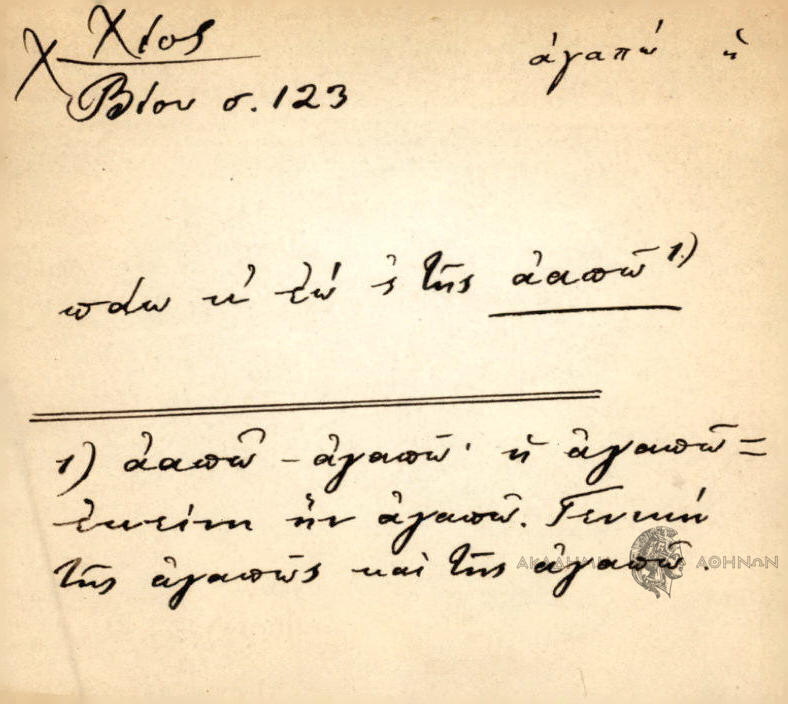 Χ Χίος
Βίου σ. 123
ἀγαπώ ἡ
πάω κ' ἐώ ς τῆς ἀαπῶ 1)
1) ἀαπῶ - ἀγαπῶ· ἡ ἀγαπῶ =
ἐκείνη ἣν ἀγαπῶ. Γενική
τῆς ἀγαπῶς καὶ τῆς ἀγαπῶ.
ΑΚΑΔΗΜΙΑ ΑΘΗΝΩΝ